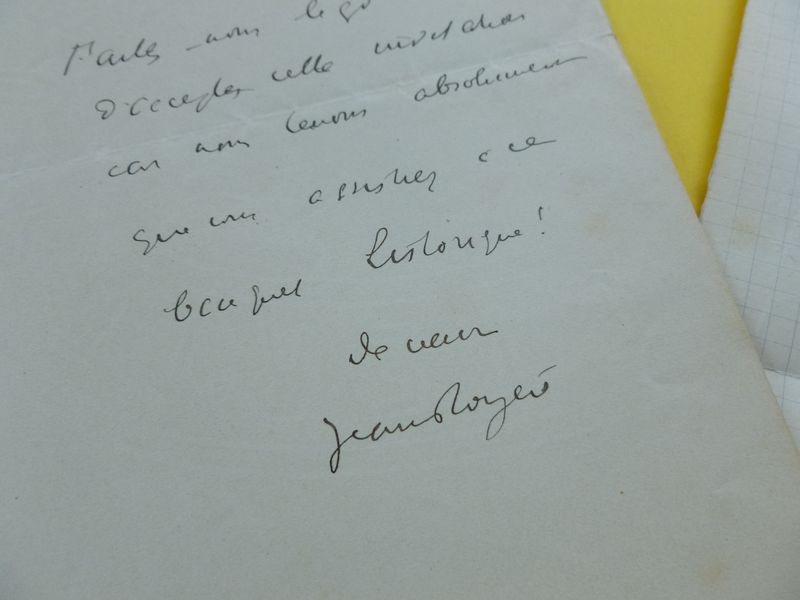 Faites-nous le
d'accepter cette invitation
car nous tenons absolument
que vous assistiez à ce
banquet historique!
De cœur
Jean Royère